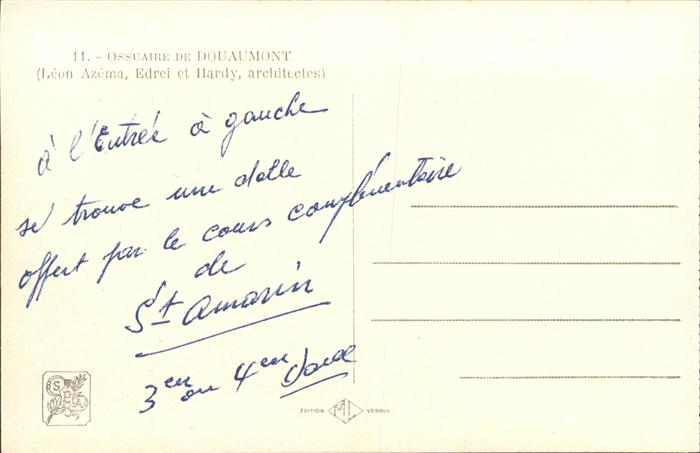 11. - OSSUAIRE DE DOUAUMONT
(Léon Azéma, Edrei et Hardy, architectes)
à l'Entrée à gauche
se trouve une dalle
offert par le cours complémentaire
de
St Amarin
3em ou 4em
ÉDITION ML VERDUN